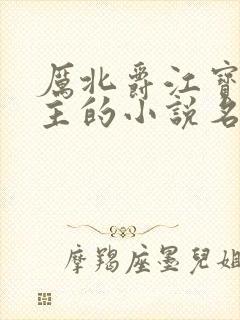 厲北爵江寶
主的小說名
摩羯座墨兒姐